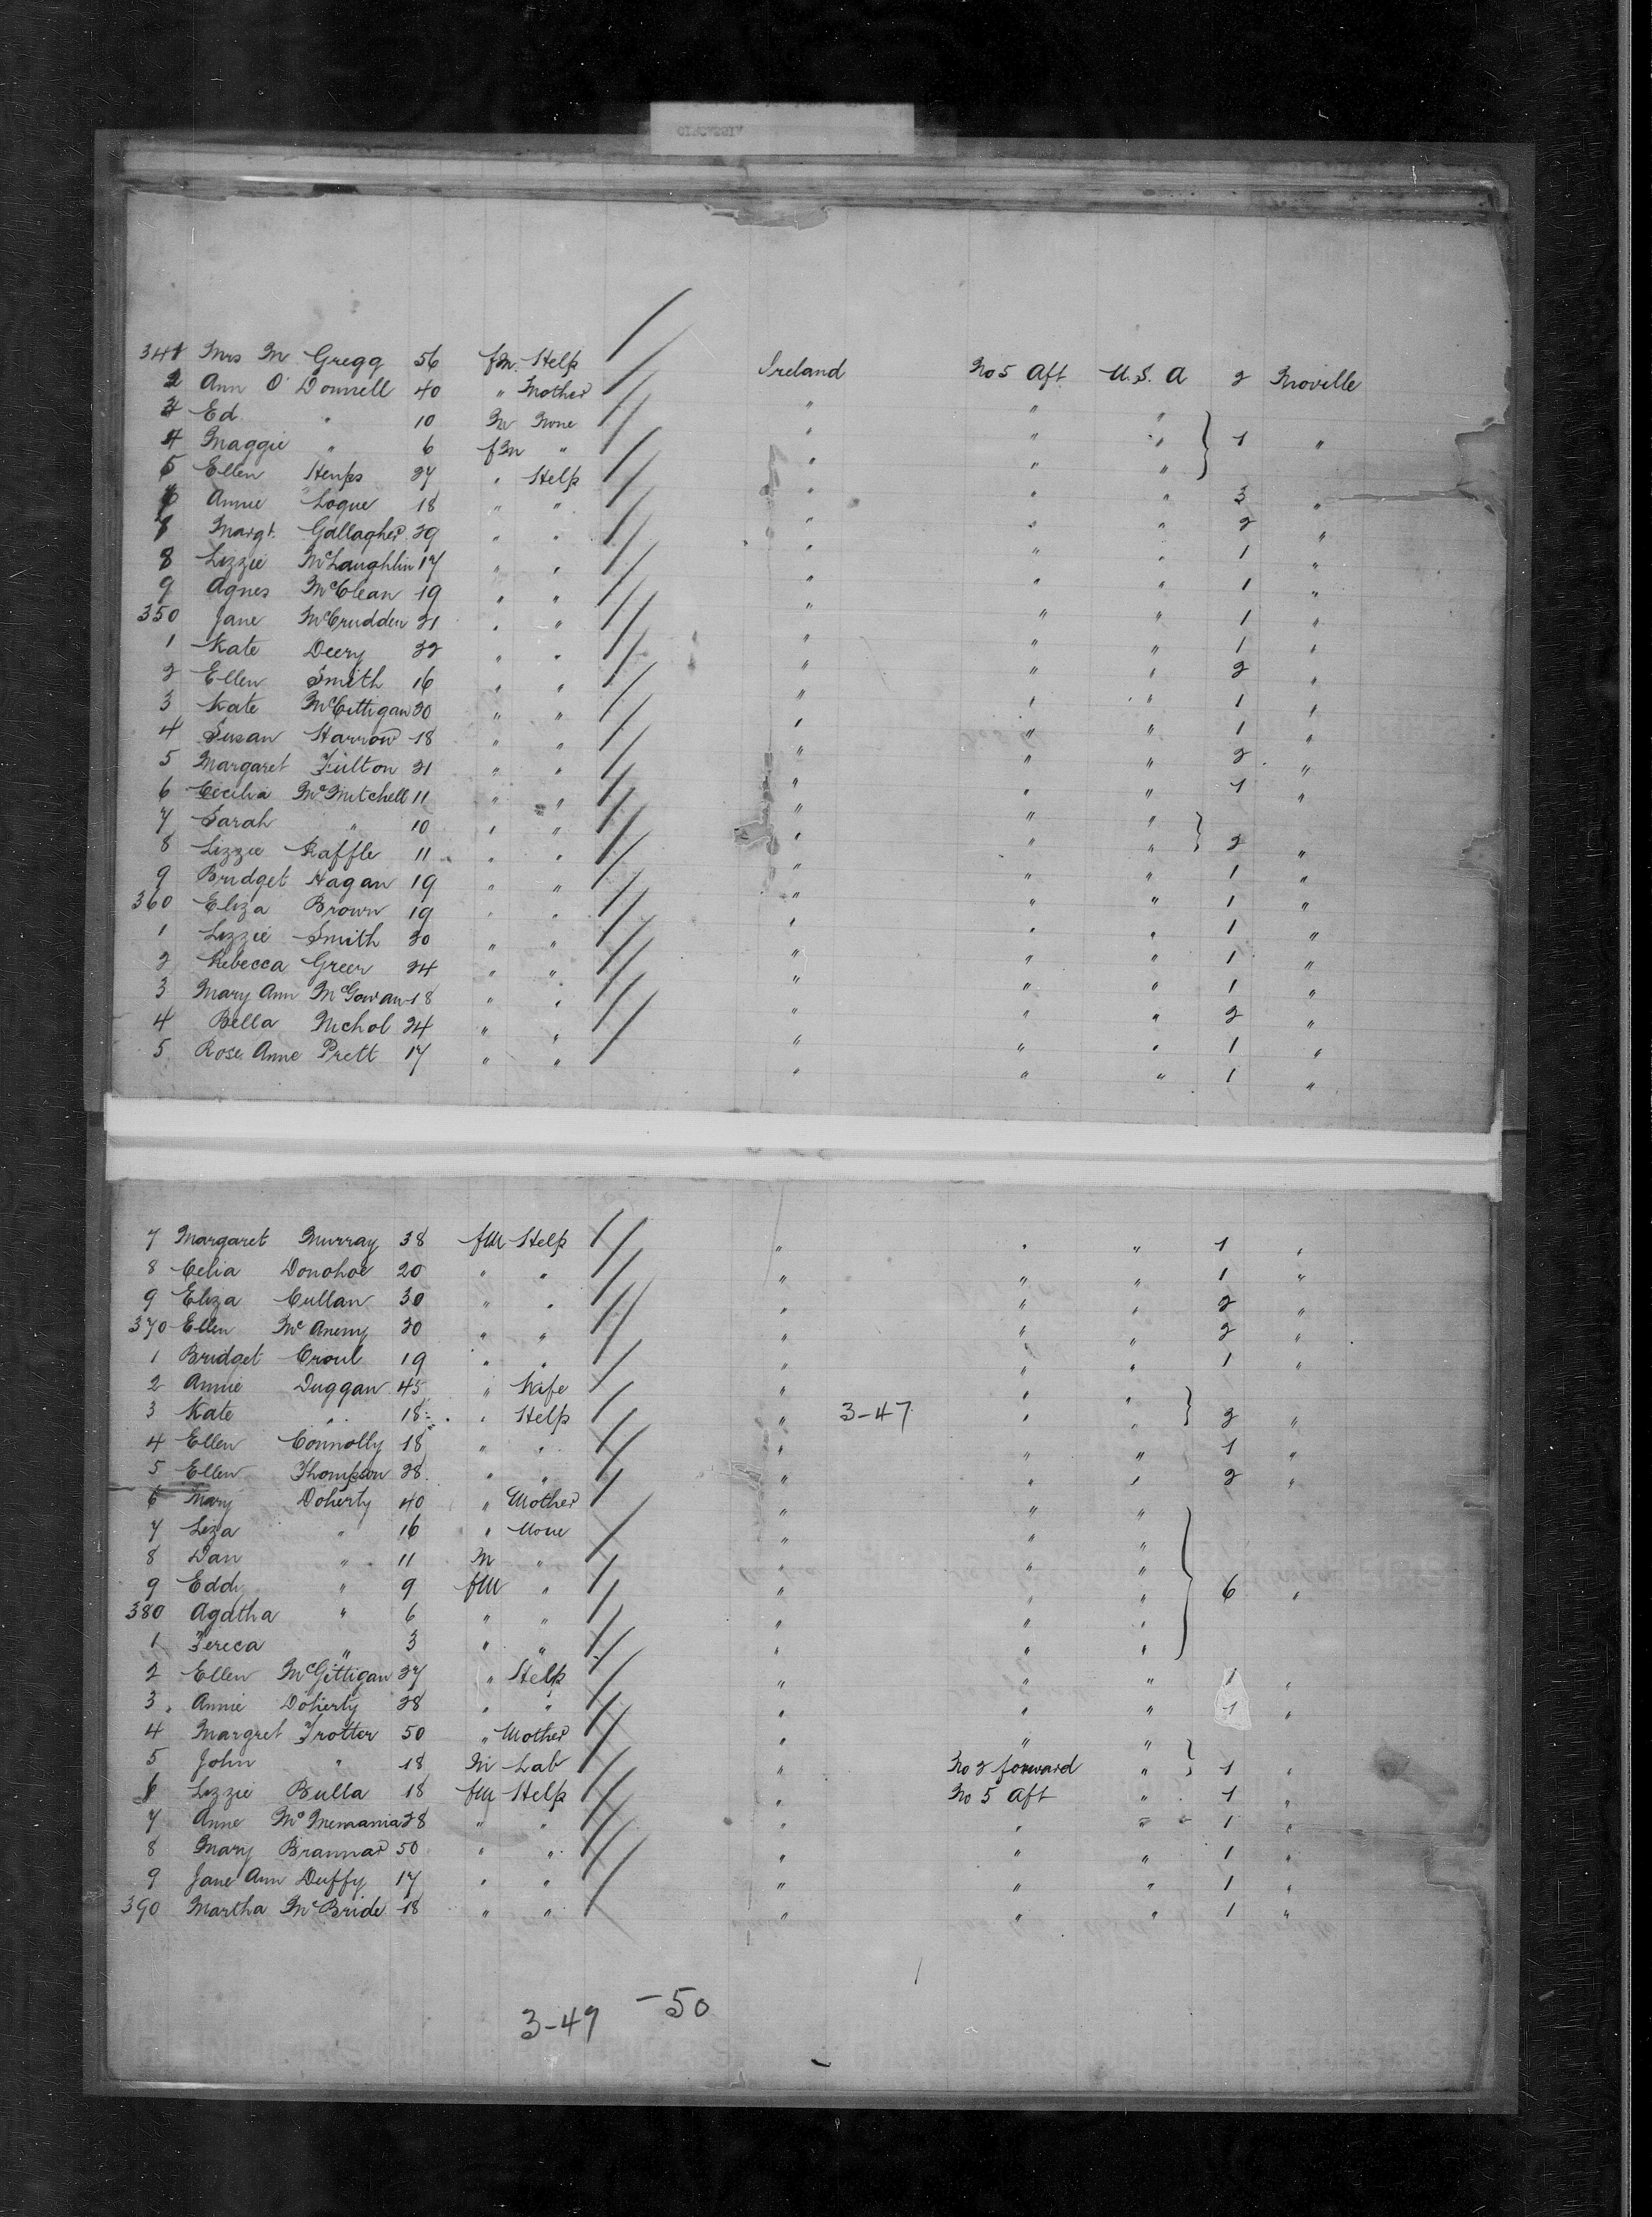 341 Mrs M Gregg 56 fm. Help Ireland No 5 Aft U.S. A 2 Moville
2 Ann O'Donnell 40 " Mother " " "
3 Ed. " 10 M None " " " } 1 "
4 Maggie " 6 fm " " " "
5 Ellen Heups 27 " Help " " " 3 "
6 Annie Logue 18 " " " " " 2 "
7 Margt. Gallagher 29 " " " " " 1 "
8 Lizzie McLaughlin 17 " " " " " 1 "
9 Agnes McClean 19 " " " " " 1 "
350 Jane McCrudden 21 " " " " " 1 "
1 Kate Deery 22 " " " " " 2 "
2 Ellen Smith 16 " " " " " 1 "
3 Kate McCittigan 20 " " " " " 1 "
4 Susan Harrow 18 " " " " " 2 "
5 Margaret Fulton 21 " " " " " 1 "
6 Cecilia McMitchell 11 " " " " "
7 Sarah " 10 " " " " " } 2 "
8 Lizzie Raffle 11 " " " " " 1 "
9 Bridget Hagan 19 " " " " " 1 "
360 Eliza Brown 19 " " " " " 1 "
1 Lizzie Smith 20 " " " " " 1 "
2 Rebecca Greer 24 " " " " " 1 "
3 Mary Ann McGowan 18 " " " " " 2 "
4 Bella Nichol 24 " " " " " 1 "
5 Rose Anne Prett 17 " " " " " 1 "
7 Margaret Murray 38 fm Help " " " 1 "
8 Celia Donohoe 20 " " " " " 1 "
9 Eliza Cullan 30 " " " " " 2 "
370 Ellen McAneny 20 " " " " " 2 "
1 Bridget Croul 19 " " " " " 1 "
2 Annie Duggan 45 " Wife " " "
3 Kate " 18 " Help " 3-47 " " } 2 "
4 Ellen Connolly 18 " " " " " 1 "
5 Ellen Thompson 28 " " " " " 2 "
6 Mary Doherty 40 " Mother " " "
7 Liza " 16 " None " " "
8 Dan " 11 M " " " "
9 Eddy " 9 fm " " " " } 6 "
380 Agatha " 6 " " " " "
1 Tereca " 3 " " " " "
2 Ellen McGittigan 27 " Help " " " 1 "
3 Annie Doherty 28 " " " " " 1 "
4 Margret Trotter 50 " Mother " " "
5 John " 18 M Lab " No 2 forward " } 1 "
6 Lizzie Bulla 18 fm Help " No 5 Aft " 1 "
7 Anne McMemamia 28 " " " " " 1 "
8 Mary Brannar 50 " " " " " 1 "
9 Jane Ann Duffy 17 " " " " " 1 "
390 Martha McBride 18 " " " " " 1 "
3-49 -50